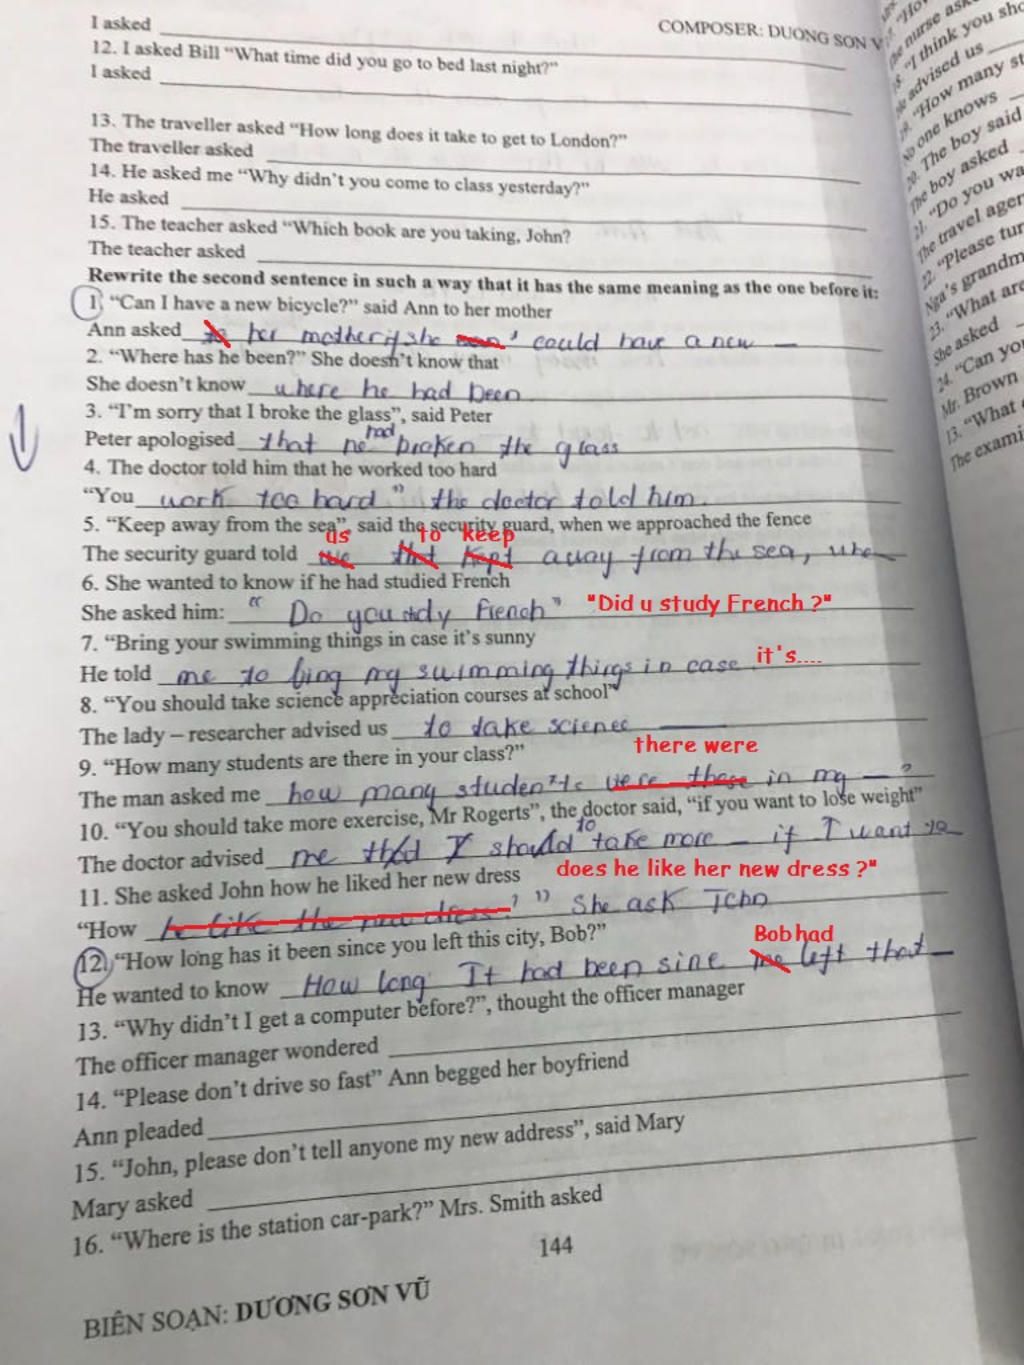 COMPOSER: DUONG SON V
I asked
12. I asked Bill “What time did you go to bed last night?”
I asked
13. The traveller asked “How long does it take to get to London?”
The traveller asked
14. He asked me “Why didn’t you come to class yesterday?”
He asked
15. The teacher asked “Which book are you taking, John?
The teacher asked
Rewrite the second sentence in such a way that it has the same meaning as the one before it:
1. “Can I have a new bicycle?” said Ann to her mother
Ann asked her mother if she could have a new
2. “Where has he been?” She doesn’t know that
She doesn’t know where he had been
3. “I’m sorry that I broke the glass”, said Peter
Peter apologised that he had broken the glass
4. The doctor told him that he worked too hard
“You work too hard” the doctor told him.
5. “Keep away from the sea”, said the security guard, when we approached the fence
us to keep
The security guard told we that kept away from the sea, whe
6. She wanted to know if he had studied French
She asked him: “Do you study French” "Did u study French ?"
7. “Bring your swimming things in case it’s sunny
He told me to bing my swimming things in case it's....
8. “You should take science appreciation courses at school”
The lady – researcher advised us to take science
9. “How many students are there in your class?”
there were
The man asked me how many students were there in my ?
10. “You should take more exercise, Mr Rogerts”, the doctor said, “if you want to lose weight”
The doctor advised me that I should to take more if I want to
11. She asked John how he liked her new dress
does he like her new dress ?"
“How he like the new dress ?” She ask John
12. “How long has it been since you left this city, Bob?”
Bob had
He wanted to know How long It had been sine left that
13. “Why didn’t I get a computer before?”, thought the officer manager
The officer manager wondered
14. “Please don’t drive so fast” Ann begged her boyfriend
Ann pleaded
15. “John, please don’t tell anyone my new address”, said Mary
Mary asked
16. “Where is the station car-park?” Mrs. Smith asked
144
BIÊN SOẠN: DƯƠNG SƠN VŨ
"How
The nurse ask
"I think you sho
He advised us
19. "How many st
No one knows
20. The boy said
The boy asked
21. "Do you wa
The travel agen
22. "Please tur
Nga's grandm
23. "What are
She asked
24. "Can you
Mr. Brown
13. "What
The exami